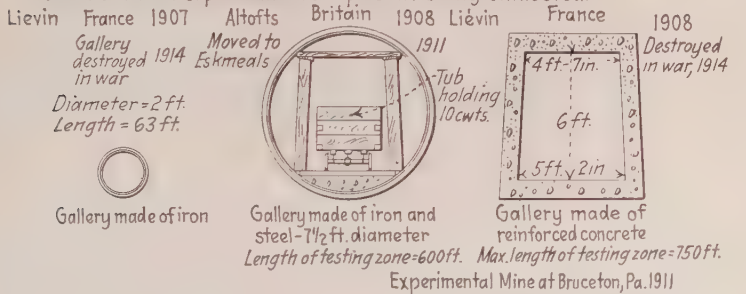 Lievin France 1907
Gallery
destroyed 1914
in war
Diameter = 2 ft.
Length = 63 ft.
Gallery made of iron
Altofts Britain 1908
Moved to 1911
Eskmeals
Tub
holding
10cwts.
Gallery made of iron and
steel-7½ft. diameter
Length of testing zone=600ft.
Liévin France 1908
Destroyed
in war, 1914
4 ft-7in.
6 ft.
5 ft. 2 in
Gallery made of
reinforced concrete
Max. length of testing zone=750 ft.
Experimental Mine at Bruceton, Pa. 1911